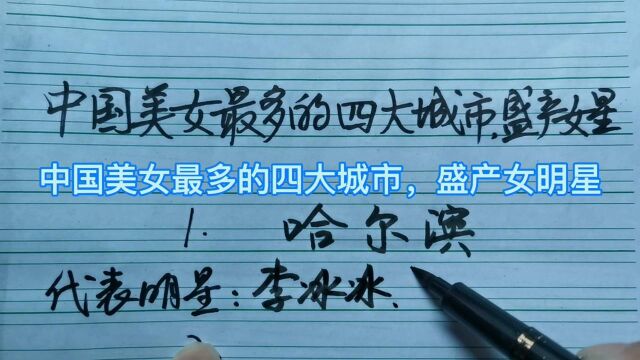 中国美女最多的四大城市,盛产女星
中国美女最多的四大城市，盛产女明星
1. 哈尔滨
代表明星:李冰冰.